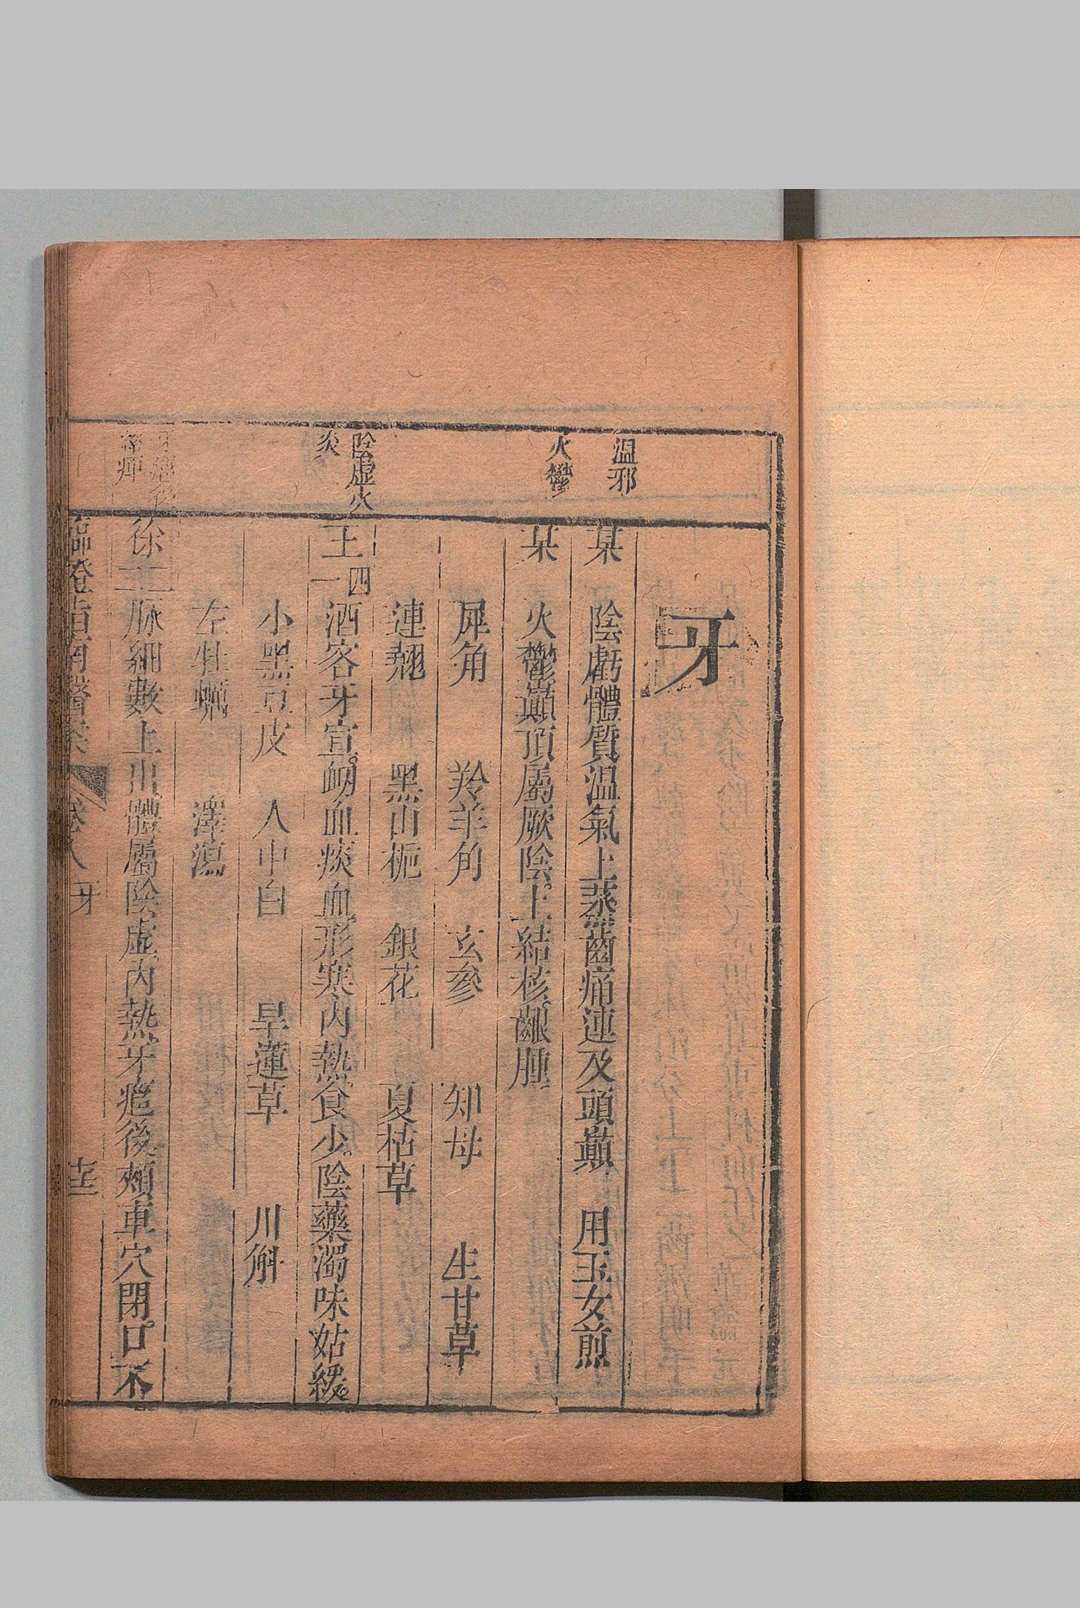 牙
溫邪
某　陰虧體質溫氣上蒸齒痛連及頭巔　用玉女煎
火鬱
某　火鬱巔頂屬厥陰上結核齦腫
犀角　羚羊角　玄參　知母　生甘草
連翹　黑山梔　銀花　夏枯草
陰虛火炎
王四一　酒客牙宣衂血痰血形寒內熱食少陰藥濁味姑緩
小黑豆皮　人中白　旱蓮草　川斛
左牡蠣　澤瀉
徐　脉細數上出體屬陰虛內熱牙疳後頰車穴閉口不
臨證指南醫案　卷八　牙